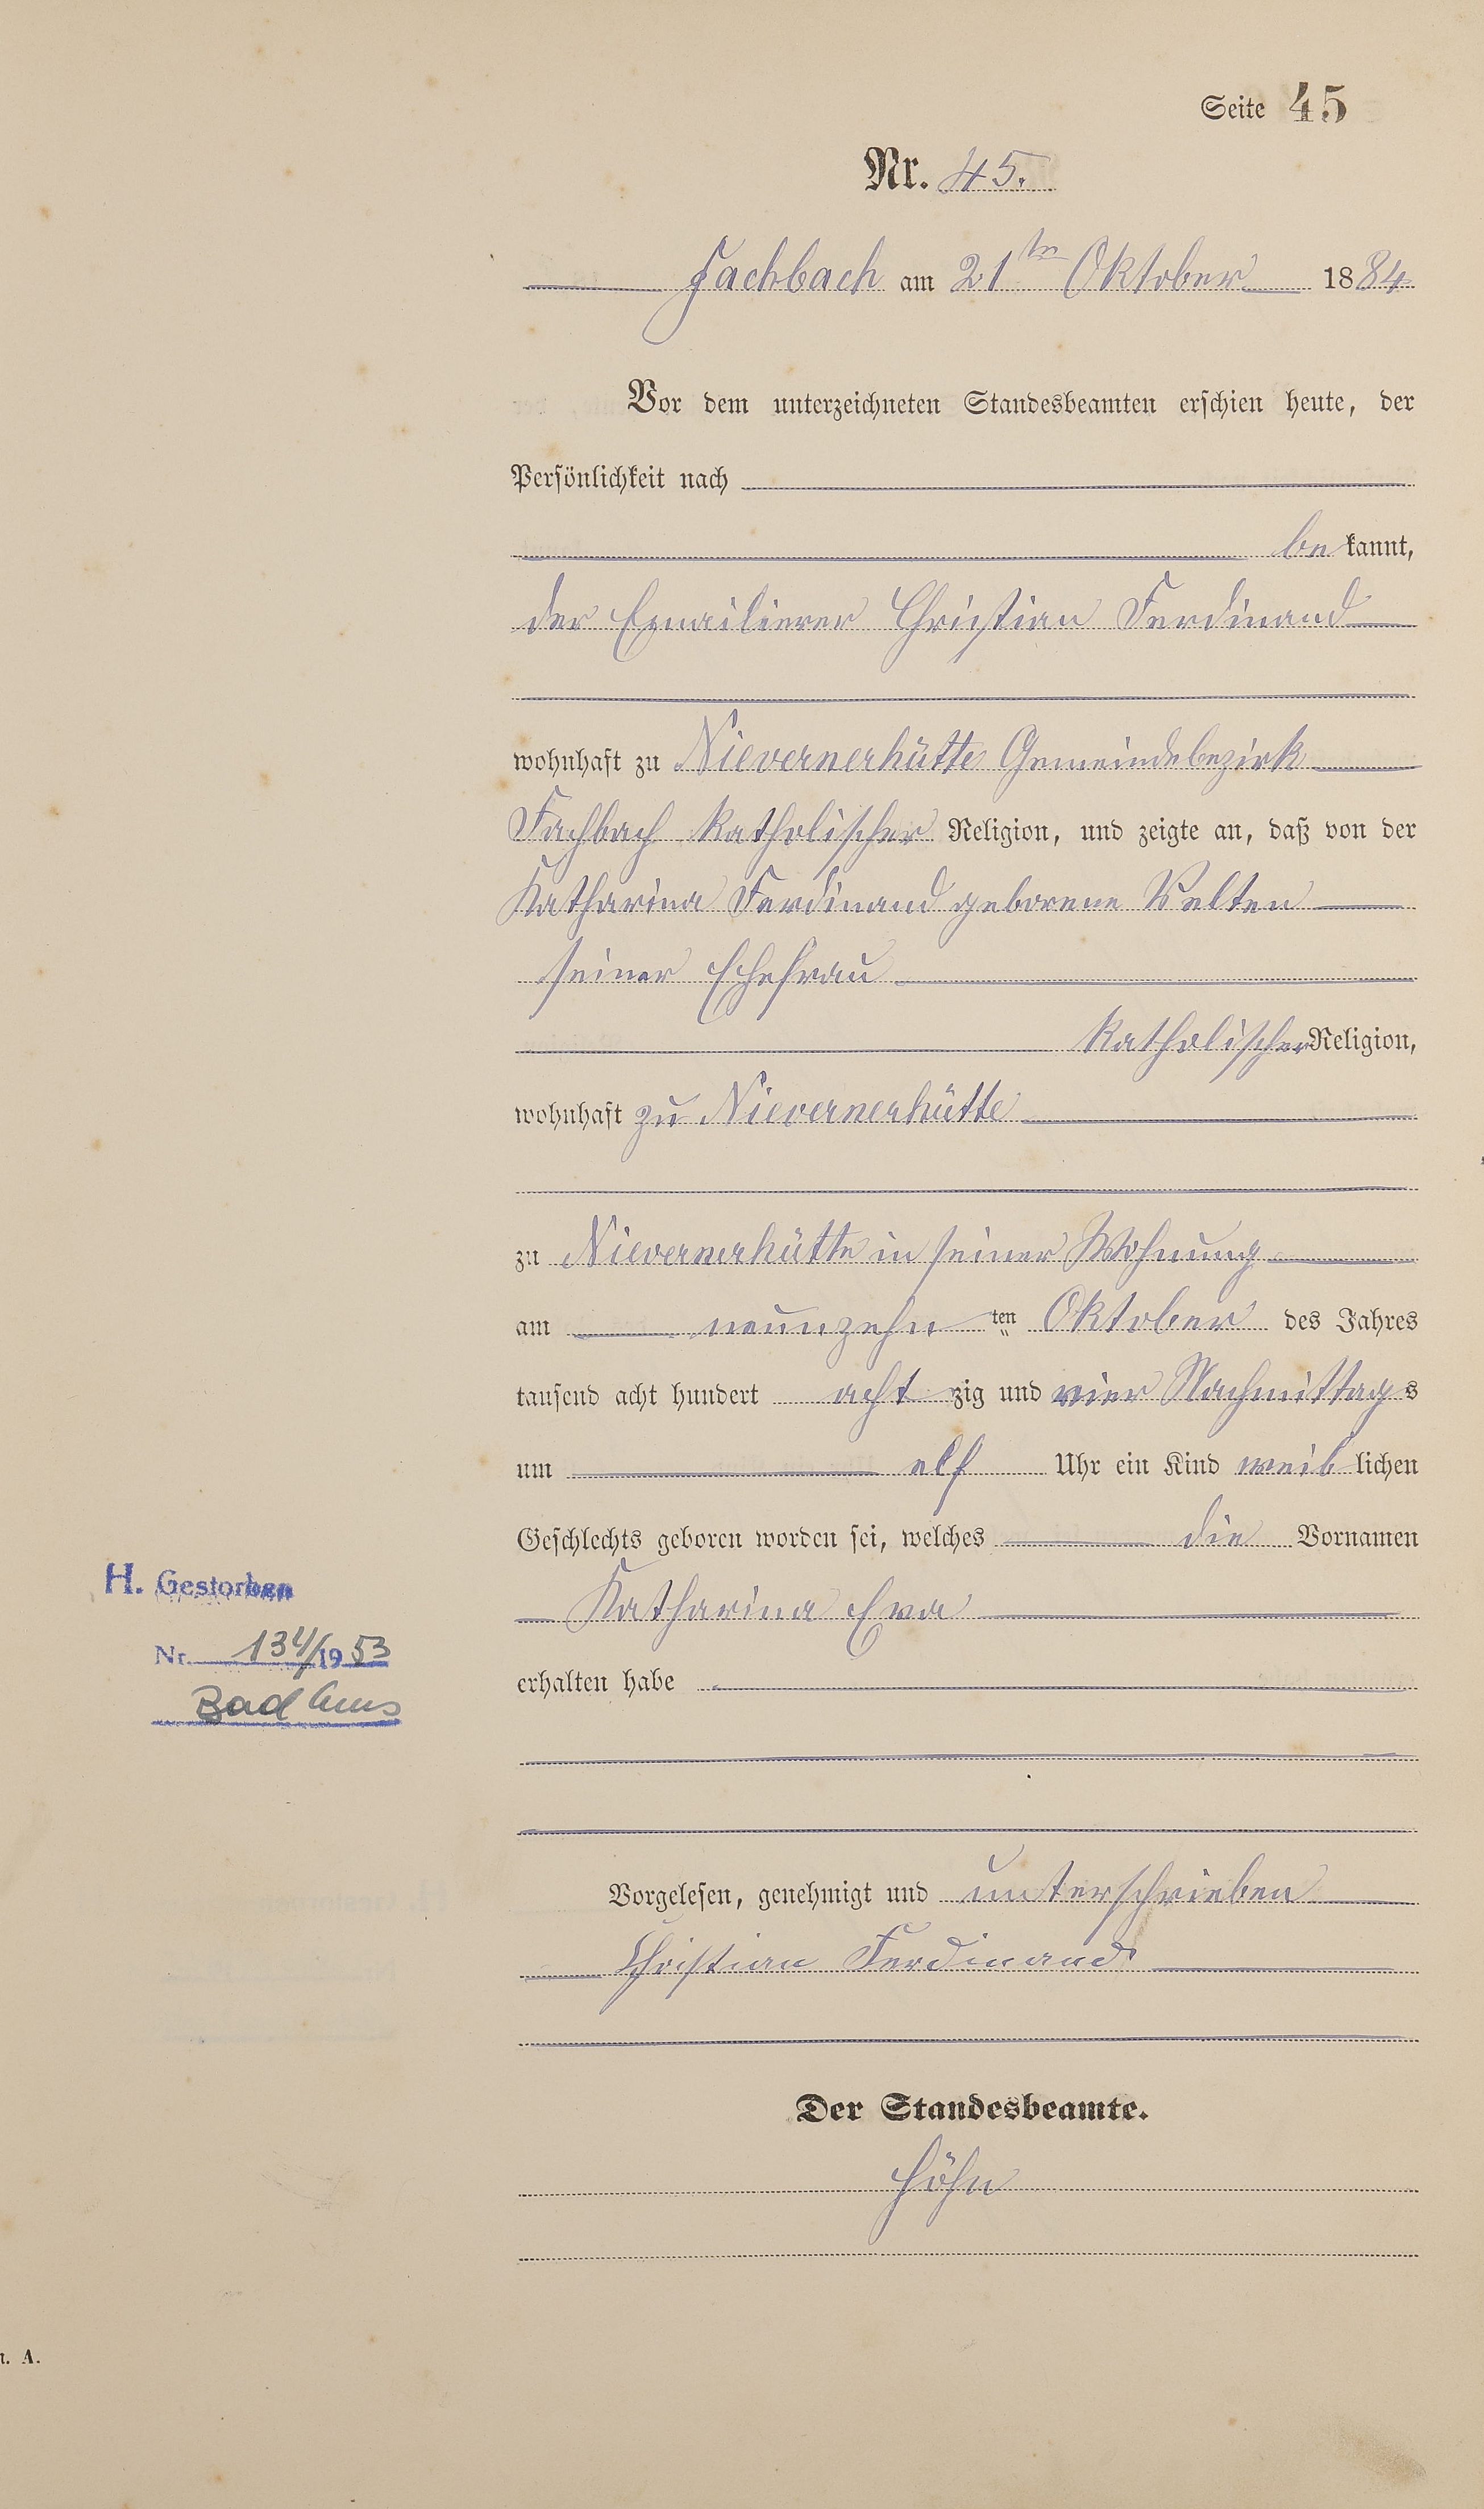 Seite 45
Nr. 45.
Fachbach am 21ten Oktober 1884
Vor dem unterzeichneten Standesbeamten erschien heute, der
Persönlichkeit nach
be kannt,
der Emailierer Christian Ferdinand
wohnhaft zu Nievernerhütte Gemeindebezirk
Fachbach katholischer Religion, und zeigte an, daß von der
Katharina Ferdinand geborene Velten
seiner Ehefrau
katholischer Religion,
wohnhaft zu Nievernerhütte
zu Nievernerhütte in seiner Wohnung
am neunzehn ten Oktober des Jahres
tausend acht hundert acht zig und vier Nachmittags
um elf Uhr ein Kind weib lichen
Geschlechts geboren worden sei, welches die Vornamen
Katharina Eva
erhalten habe
H. Gestorben
Nr. 134/1953
Bad Ems
Vorgelesen, genehmigt und unterschrieben
Christian Ferdinand
Der Standesbeamte.
Höhn
A.